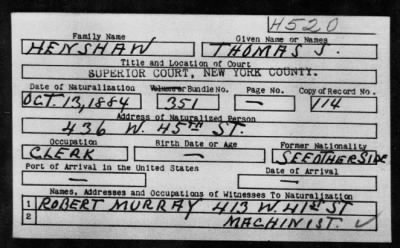 H520
Family Name Given Name or Names
HENSHAW THOMAS J.
Title and Location of Court
SUPERIOR COURT, NEW YORK COUNTY.
Date of Naturalization Volume or Bundle No. Page No. Copy of Record No.
OCT. 13, 1884 351 — 114
Address of Naturalized Person
436 W. 45TH ST.
Occupation Birth Date or Age Former Nationality
CLERK — SEE OTHER SIDE
Port of Arrival in the United States Date of Arrival
— —
Names, Addresses and Occupations of Witnesses To Naturalization
1 ROBERT MURRAY 413 W. 41ST ST
2 MACHINIST. ✓